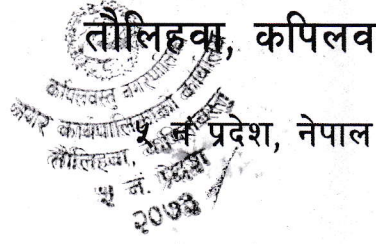 तौलिहवा, कपिलव
५ नं प्रदेश, नेपाल
कपिलवस्तु नगरपालिका
नगर कार्यपालिकाको कार्यालय
तौलिहवा,
५ नं. प्रदेश
२०७३